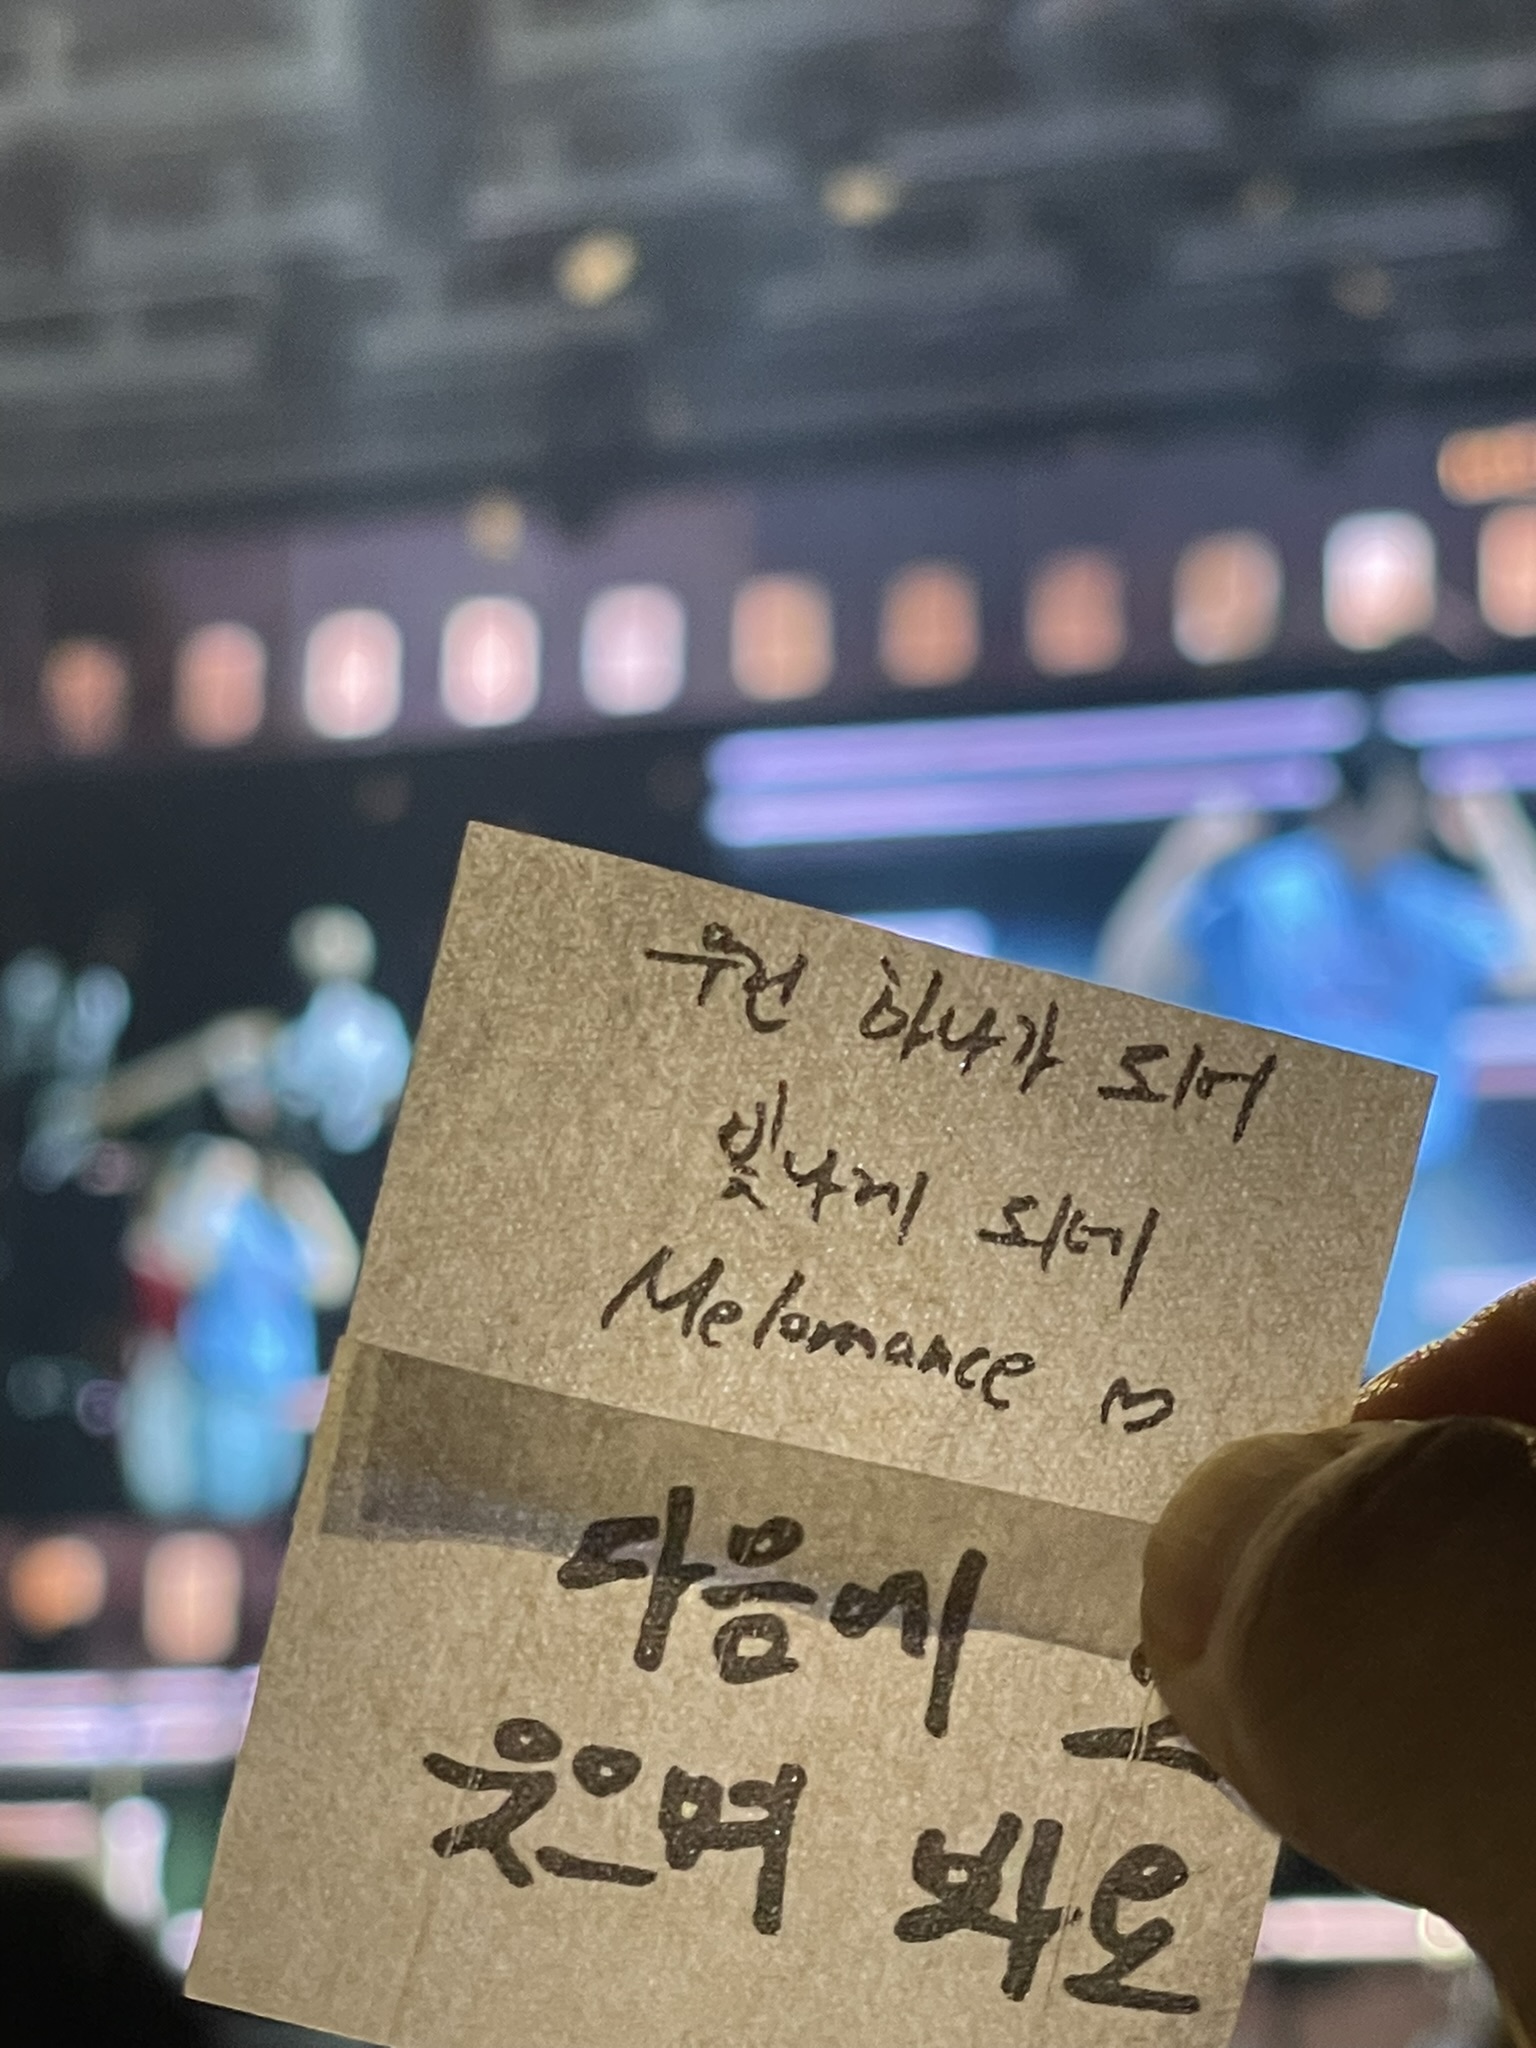 우린 하나가 되어
빛나게 되네
Melomance ♡
다음에
웃으며 봐요